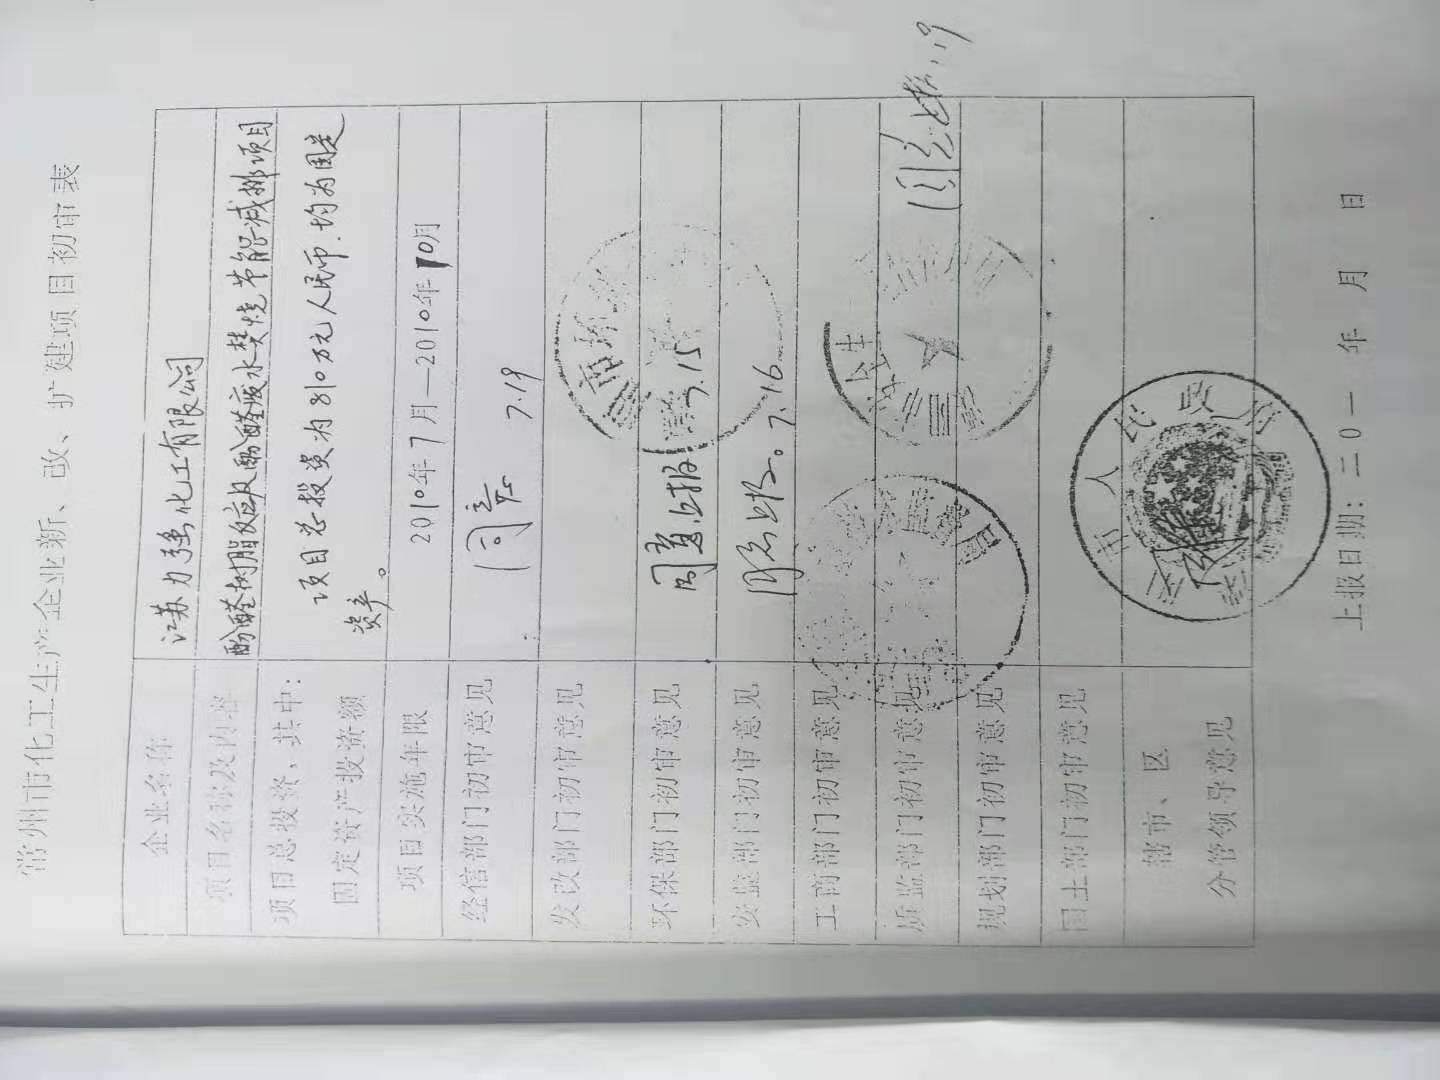 常州市化工生产企业新、改、扩建项目初审表
企业名称 江苏力强化工有限公司
项目名称及内容 酚醛树脂反应及酚醛废水焚烧节能减排项目
项目总投资,其中: 项目总投资为810万元人民币.均为固定
固定资产投资额 资产。
项目实施年限 2010年7月—2010年10月
经信部门初审意见 同意 7.19
发改部门初审意见
环保部门初审意见 同意上报 7.15
安监部门初审意见 同意上报。7.16
工商部门初审意见
质监部门初审意见 同意上报
规划部门初审意见
国土部门初审意见
辖市、区
分管领导意见
市人民政府
上报日期:二〇一 年 月 日